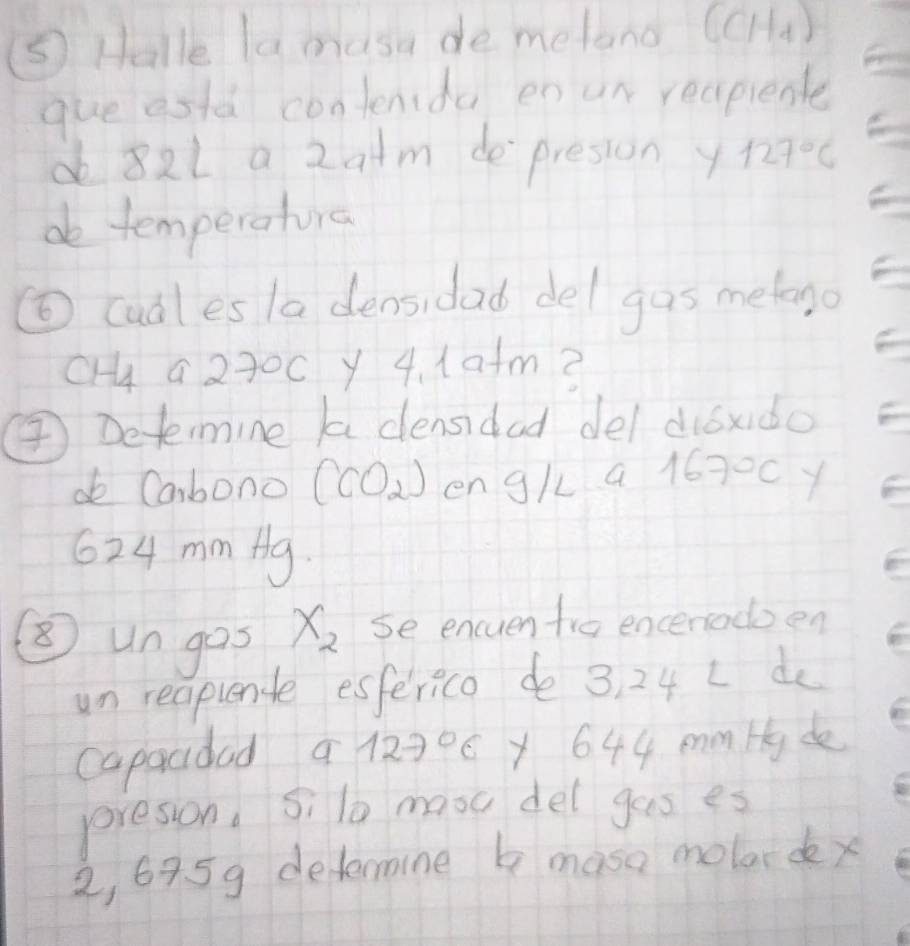 ⑤ Halle la masa de metano (CH4)
que está contenida en un recipiente
de 82L a 2atm de presion y 127°C
de temperatura
⑥ cuál es la densidad del gas metano
CH4 a 27°C y 4,1atm?
⑦ Determine la densidad del dióxido
de Carbono (CO2) en g/L a 167°C y
624 mm Hg.
⑧ un gas X2 se encuentra encerrado en
un recipiente esférico de 3,24 L de
capacidad a 127°C y 644 mm Hg de
presion. Si la masa del gas es
2,675g determine la masa molar de x